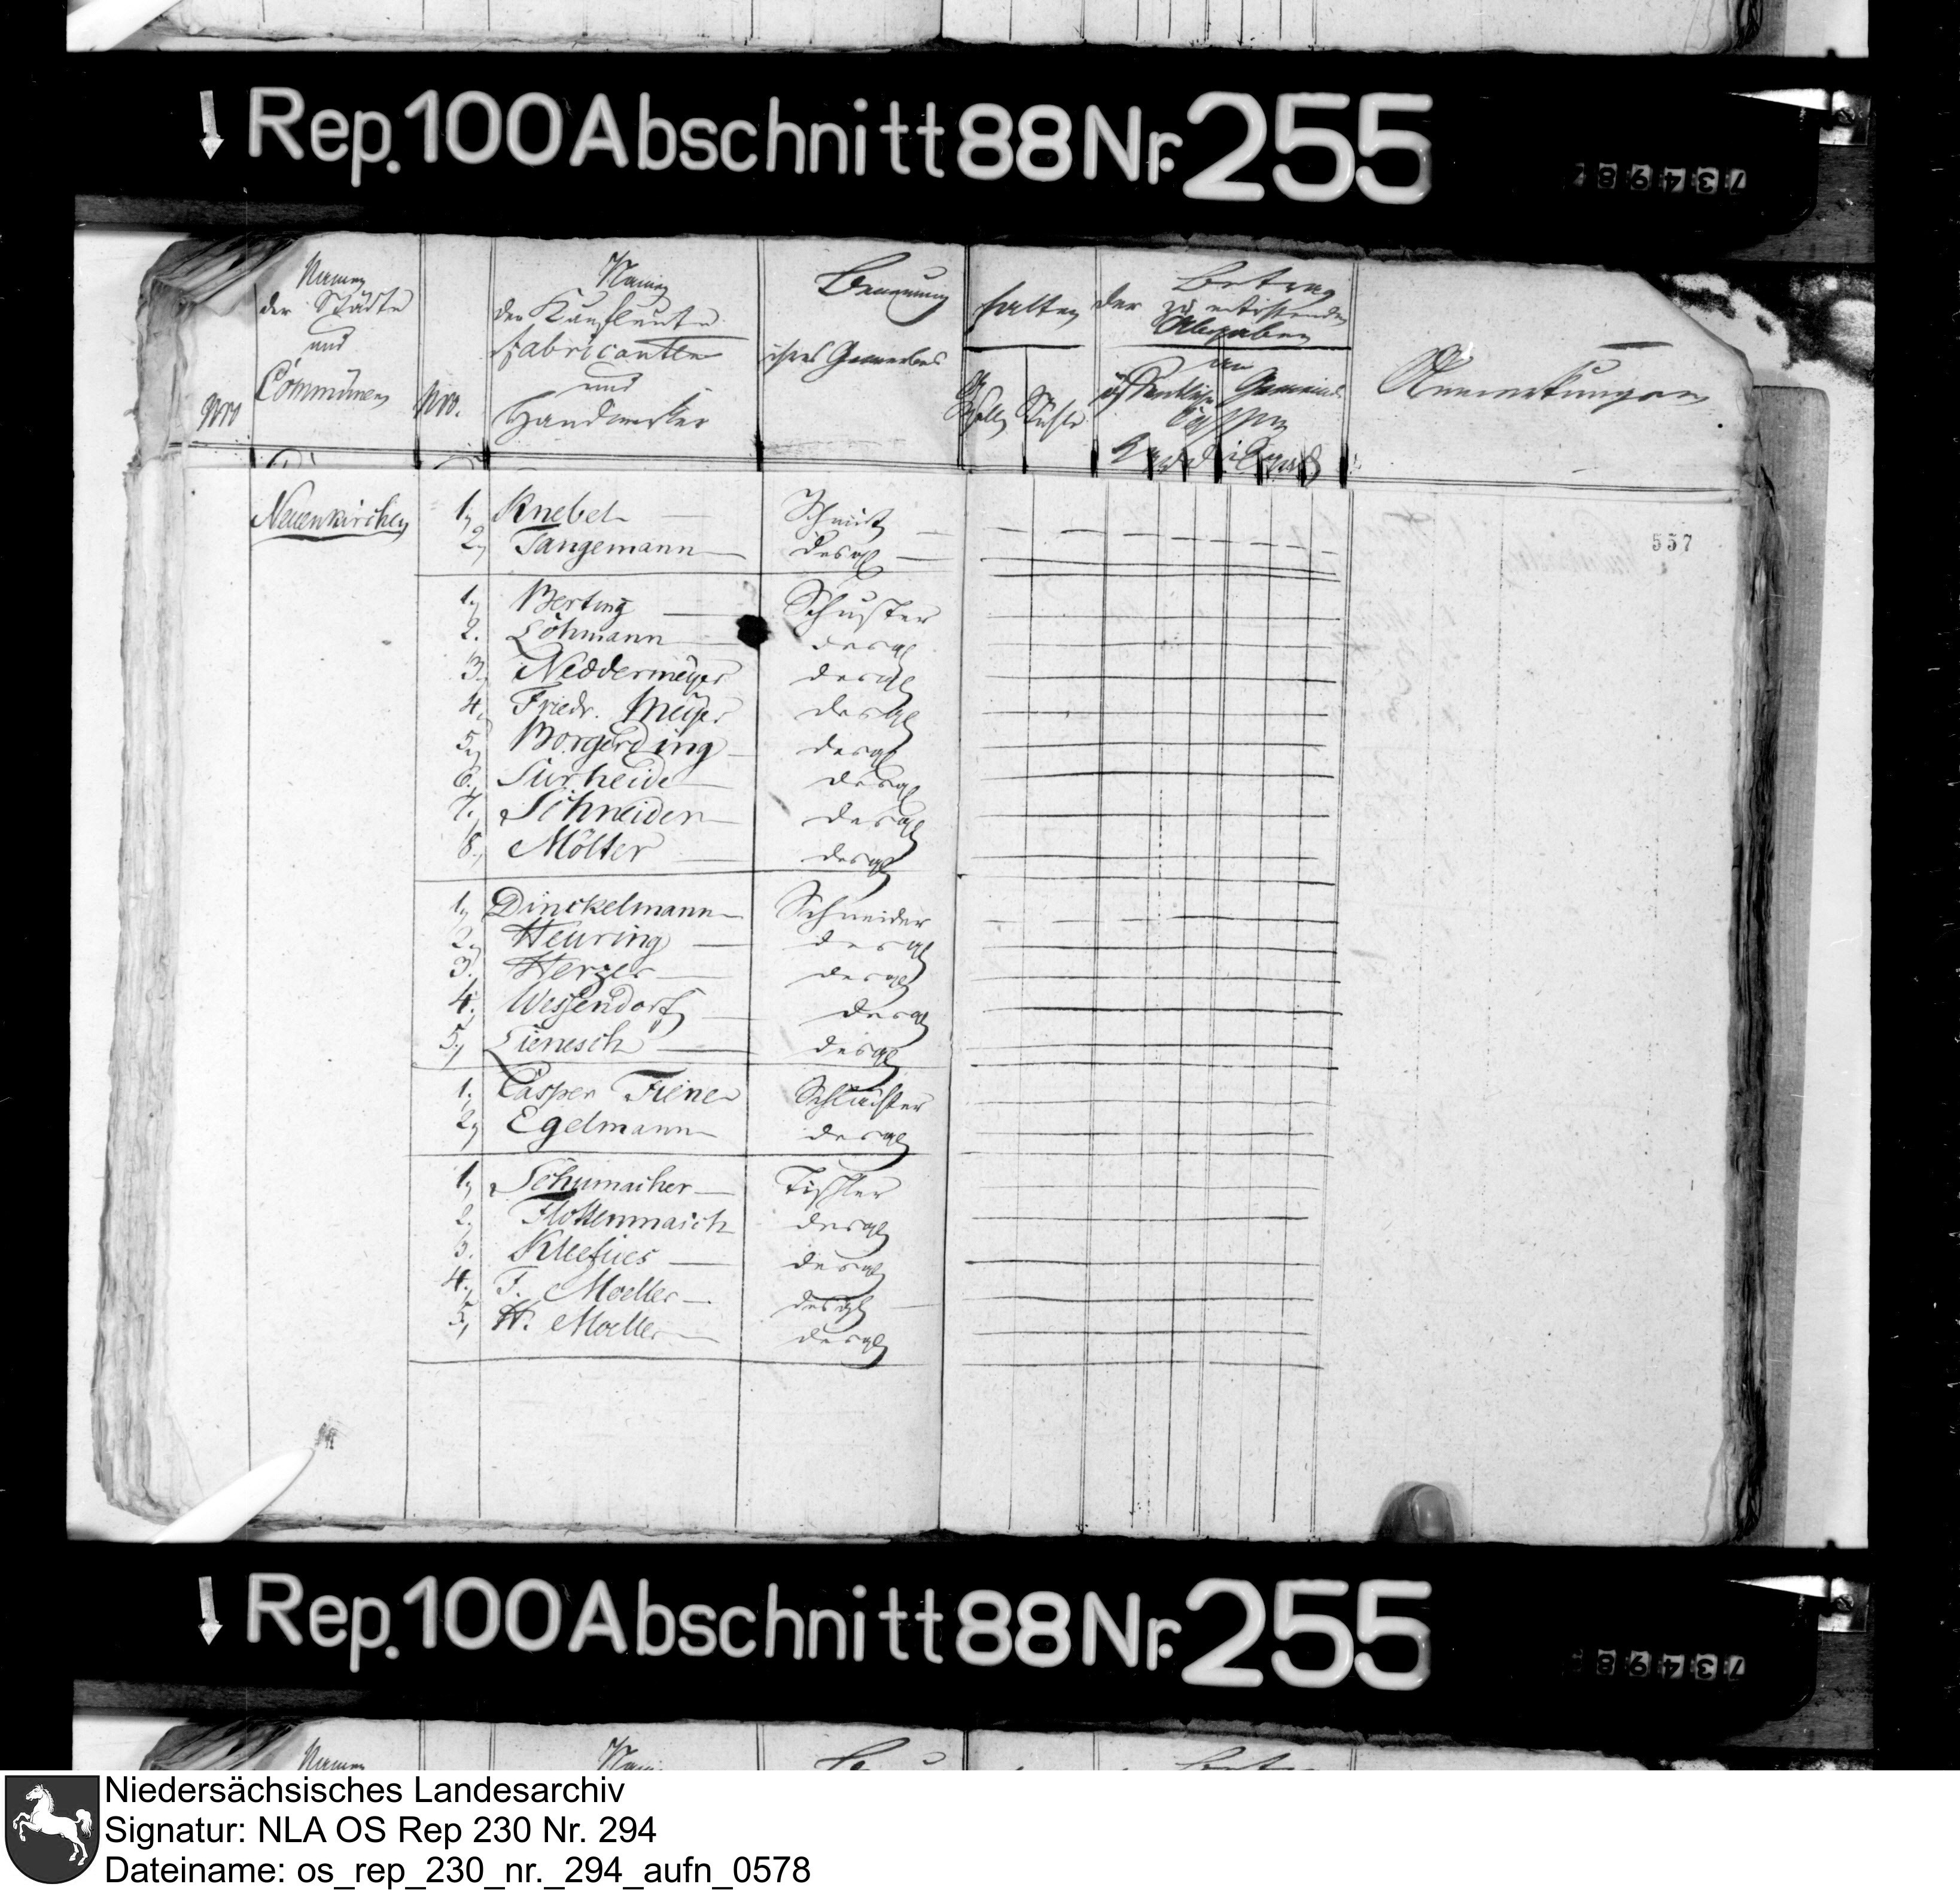 Rep. 100 Abschnitt 88 Nr. 255
734987
Namen der Städte und Communen
Nro
Nro.
Namen der Kaufleute Fabricanten und Handwerker
Benennung ihres Gewerbes
halten
Stühle
Betrag der zu entrichtenden Abgaben
an öffentliche Gemeinde Cassen
Anmerkungen
557
Neuenkirchen
1, Knebel — Schmidt —
2, Tangemann — desgl —
1, Berting — Schuster
2. Löhmann — desgl
3. Neddermeyer desgl
4. Friedr. Meyer desgl
5, Borgerding — desgl
6. Surheide — desgl
7. Schneider — desgl
8. Mölter — desgl
1, Dinckelmann — Schneider
2, Heuring — desgl
3. Herzer — desgl
4. Wessendorf — desgl
5, Lienesch — desgl
1. Casper Fiene Schlachter
2, Egelmann — desgl
1, Schumacher — Tischler
2. desgl
3. Kleefües — desgl
4. F. Moeller — desgl —
5, H. Moeller — desgl
Rep. 100 Abschnitt 88 Nr. 255
734987
Namen
Namen
Niedersächsisches Landesarchiv
Signatur: NLA OS Rep 230 Nr. 294
Dateiname: os_rep_230_nr._294_aufn_0578